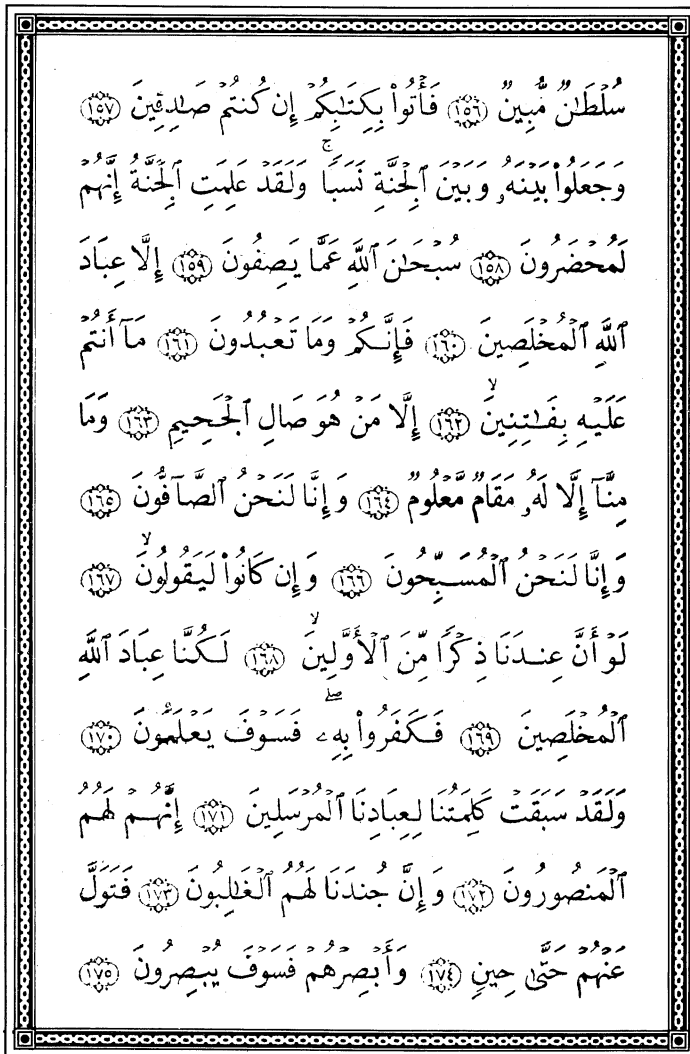 سُلْطَٰنٌ مُّبِينٌ ١٥٦ فَأْتُوا۟ بِكِتَٰبِكُمْ إِن كُنتُمْ صَٰدِقِينَ ١٥٧
وَجَعَلُوا۟ بَيْنَهُۥ وَبَيْنَ ٱلْجِنَّةِ نَسَبًاۚ وَلَقَدْ عَلِمَتِ ٱلْجِنَّةُ إِنَّهُمْ
لَمُحْضَرُونَ ١٥٨ سُبْحَٰنَ ٱللَّهِ عَمَّا يَصِفُونَ ١٥٩ إِلَّا عِبَادَ
ٱللَّهِ ٱلْمُخْلَصِينَ ١٦٠ فَإِنَّكُمْ وَمَا تَعْبُدُونَ ١٦١ مَآ أَنتُمْ
عَلَيْهِ بِفَٰتِنِينَۙ ١٦٢ إِلَّا مَنْ هُوَ صَالِ ٱلْجَحِيمِ ١٦٣ وَمَا
مِنَّآ إِلَّا لَهُۥ مَقَامٌ مَّعْلُومٌ ١٦٤ وَإِنَّا لَنَحْنُ ٱلصَّآفُّونَ ١٦٥
وَإِنَّا لَنَحْنُ ٱلْمُسَبِّحُونَ ١٦٦ وَإِن كَانُوا۟ لَيَقُولُونَۙ ١٦٧
لَوْ أَنَّ عِندَنَا ذِكْرًا مِّنَ ٱلْأَوَّلِينَۙ ١٦٨ لَكُنَّا عِبَادَ ٱللَّهِ
ٱلْمُخْلَصِينَ ١٦٩ فَكَفَرُوا۟ بِهِۦۖ فَسَوْفَ يَعْلَمُونَ ١٧٠
وَلَقَدْ سَبَقَتْ كَلِمَتُنَا لِعِبَادِنَا ٱلْمُرْسَلِينَ ١٧١ إِنَّهُمْ لَهُمُ
ٱلْمَنصُورُونَ ١٧٢ وَإِنَّ جُندَنَا لَهُمُ ٱلْغَٰلِبُونَ ١٧٣ فَتَوَلَّ
عَنْهُمْ حَتَّىٰ حِينٍ ١٧٤ وَأَبْصِرْهُمْ فَسَوْفَ يُبْصِرُونَ ١٧٥